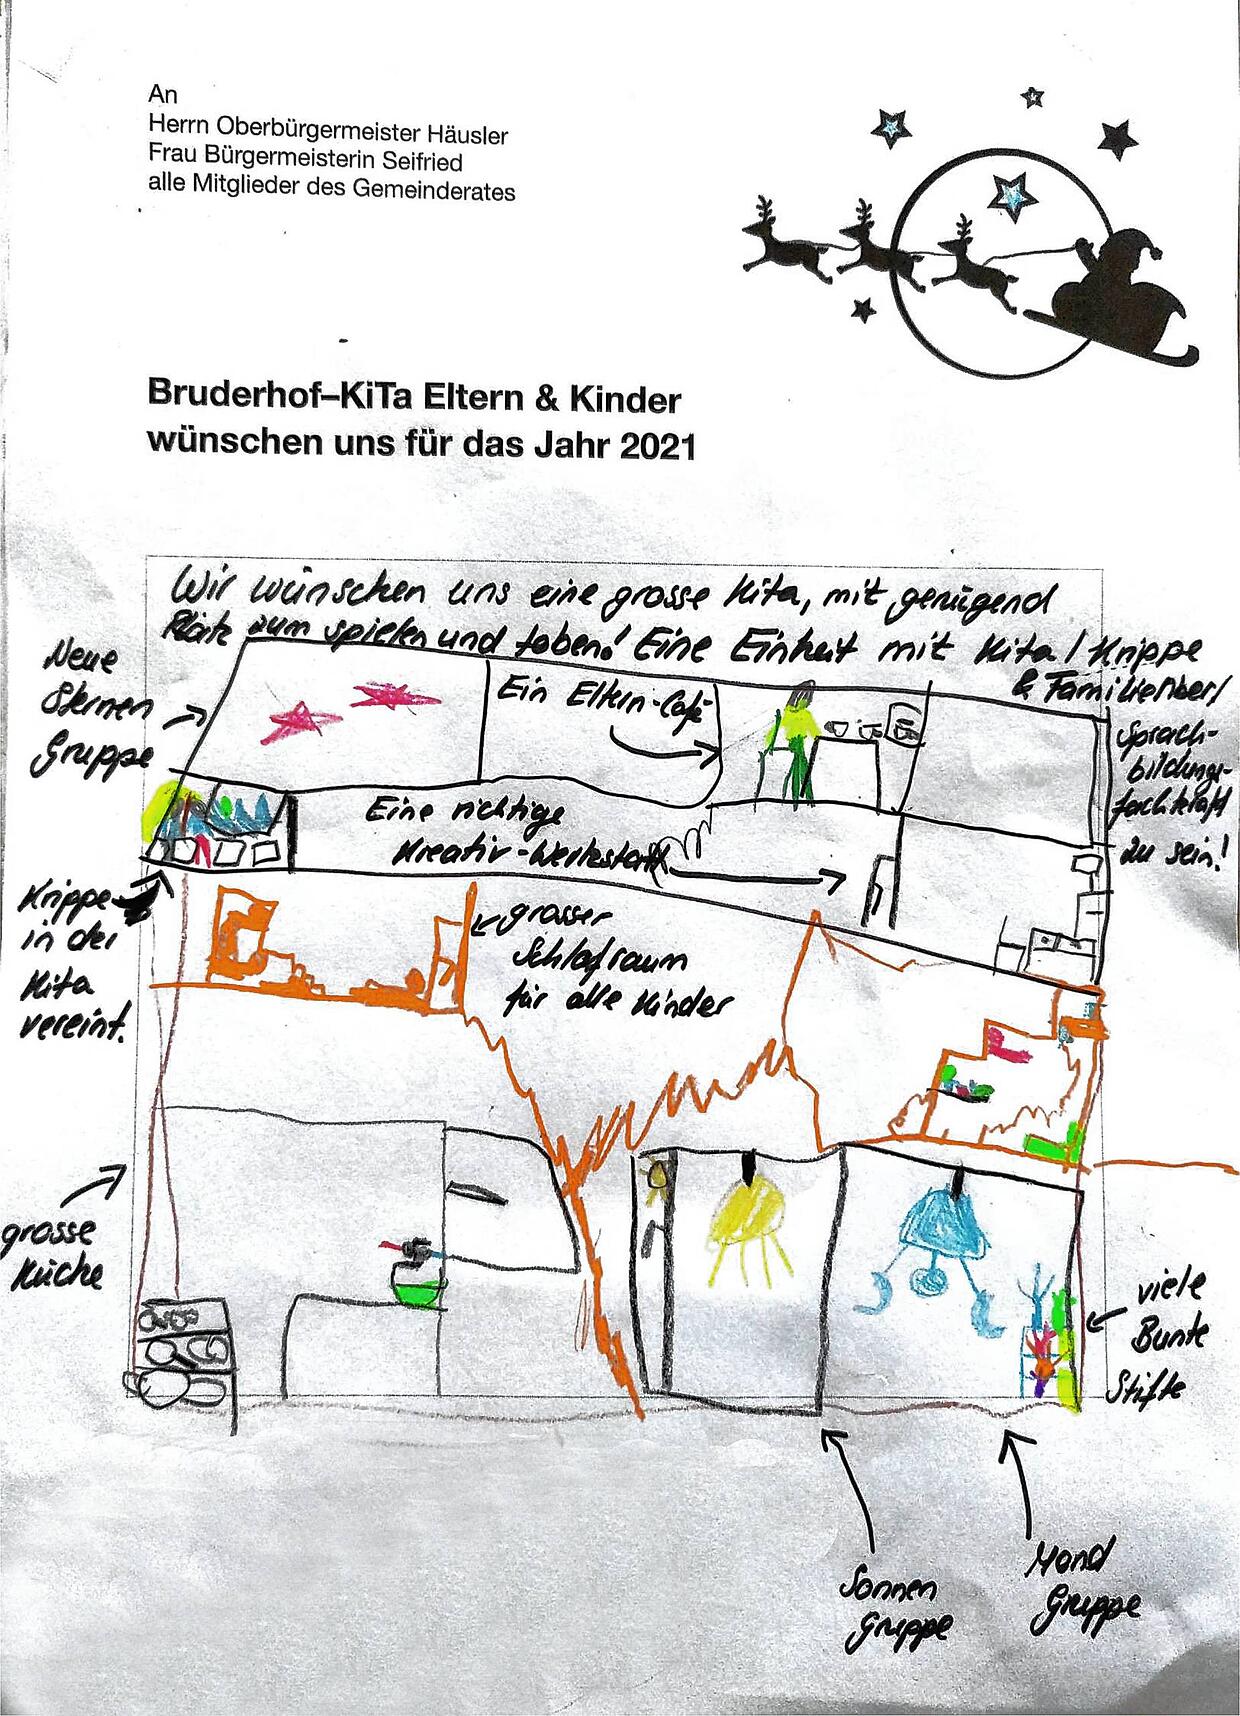 An
Herrn Oberbürgermeister Häusler
Frau Bürgermeisterin Seifried
alle Mitglieder des Gemeinderates
Bruderhof–KiTa Eltern & Kinder
wünschen uns für das Jahr 2021
Wir wünschen uns eine grosse Kita, mit genügend
Platz zum spielen und toben! Eine Einheit mit Kita / Krippe
& Familien
Sprach-
bildungs-
fachkraft
zu sein!
Neue
Sternen
Gruppe
Ein Eltern-Café
Eine richtige
Kreativ-Werkstatt
Krippe
in der
Kita
vereint.
grosser
Schlafraum
für alle Kinder
grosse
Küche
viele
Bunte
Stifte
Sonnen
Gruppe
Mond
Gruppe